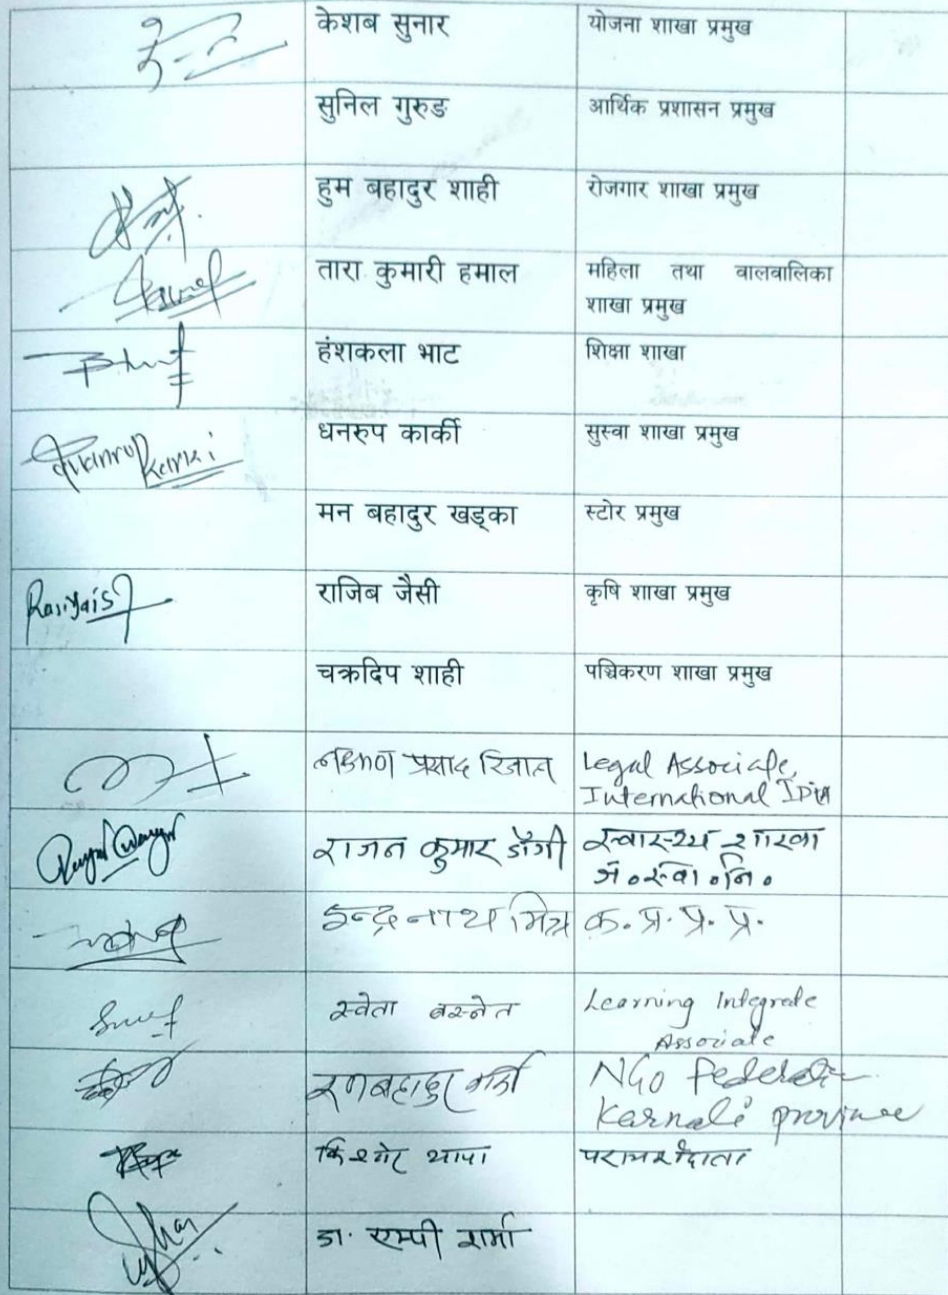 केशब सुनार योजना शाखा प्रमुख
सुनिल गुरुङ आर्थिक प्रशासन प्रमुख
हुम बहादुर शाही रोजगार शाखा प्रमुख
तारा कुमारी हमाल महिला तथा वालवालिका
शाखा प्रमुख
हंशकला भाट शिक्षा शाखा
धनरुप कार्की सुस्वा शाखा प्रमुख
मन बहादुर खड्का स्टोर प्रमुख
राजिब जैसी कृषि शाखा प्रमुख
चक्रदिप शाही पञ्चिकरण शाखा प्रमुख
प्रसाद रिजाल Legal Associate,
International IDEA
राजन कुमार डाँगी स्वास्थ्य शाखा
इन्द्र नाथ मिश्र क. प्र. प्र. प्र.
स्वेता बस्नेत Learning Integrate
Associate
रणबहादुर NGO
Karnali province
थापा परामर्शदाता
डा. एम्पी शर्मा